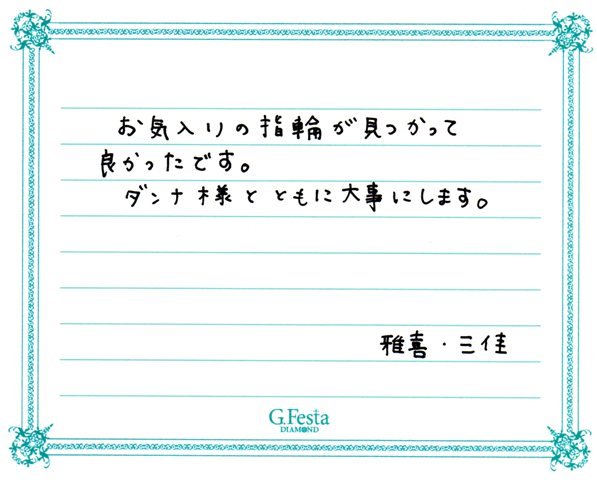 お気入りの指輪が見つかって
良かったです。
ダンナ様とともに大事にします。
雅喜・三佳
G.Festa
DIAMOND